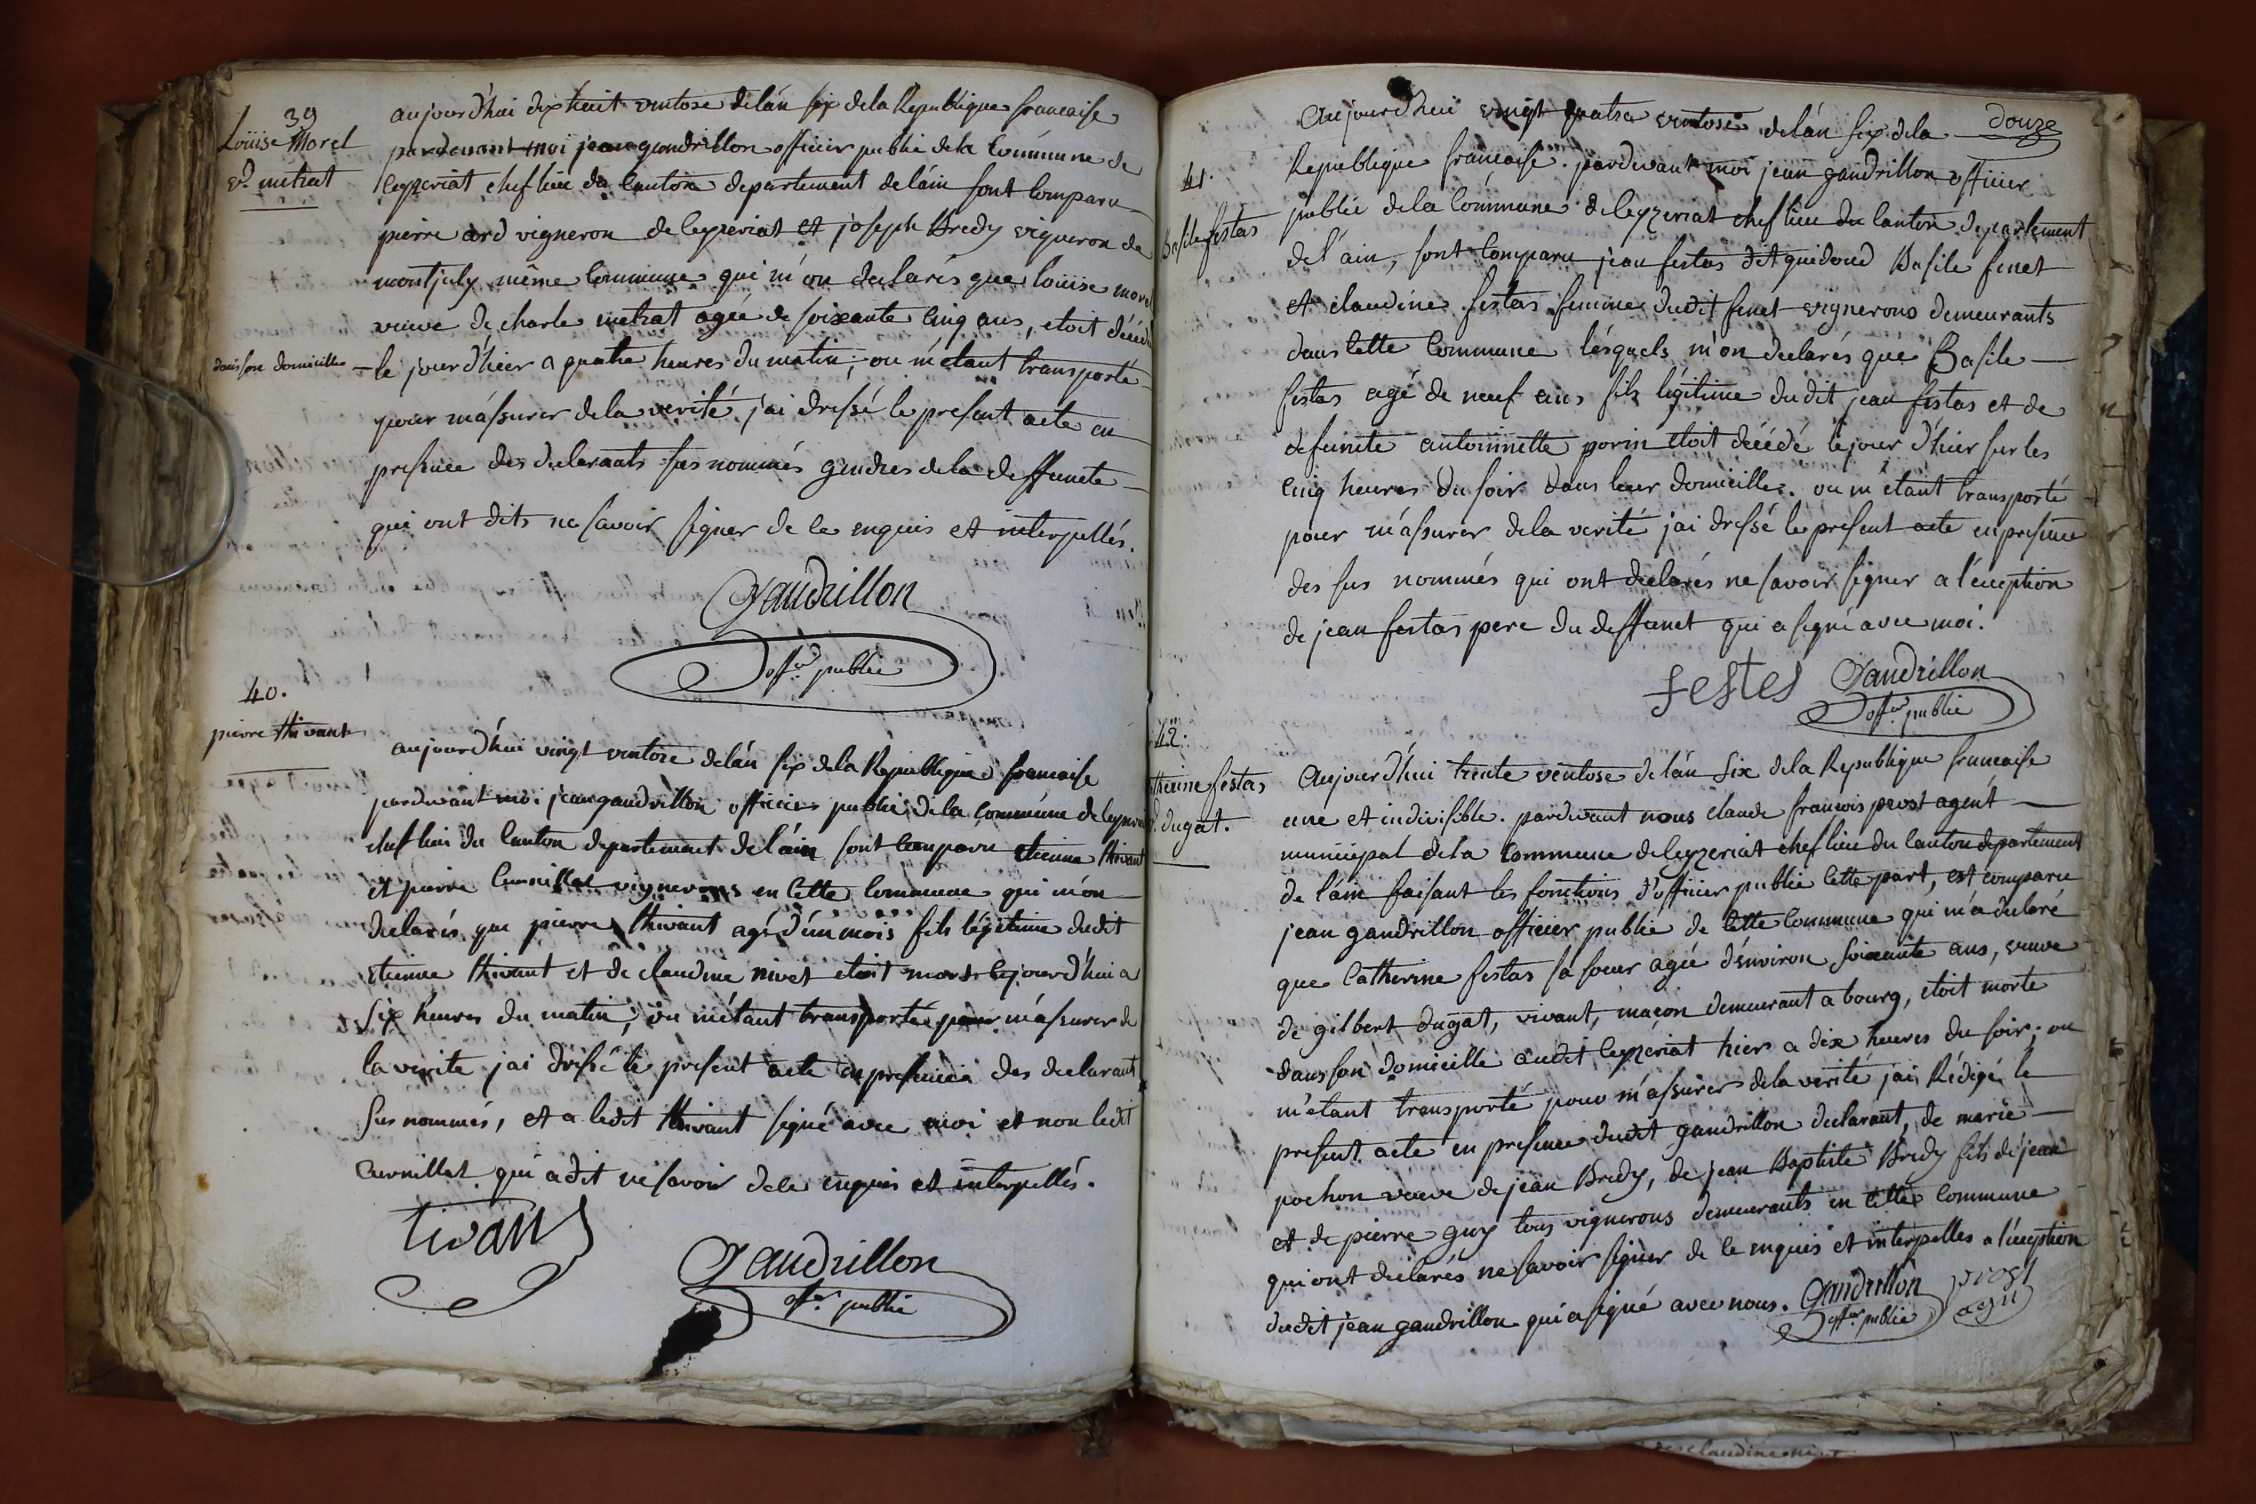 39
Loüise Morel
v.e metrat
aujourd'hui dix huit ventose de lán six de la Republique francaise
pardevant moi jean gandrillon officier public de la Commúne de
Ceyzeriat chef lieu du Canton departement de láin sont Comparu
pierre ard vigneron de Ceyzeriat et joseph Bredy vigneron de
montjuly même Commune qui m'on declarés que loüise morel
veuve de charle metrat agée de soixante Cinq ans, etoit décédée
dans son domicille
le jour d'hier a quatre heures du matin, ou m'etant transporté
pour m'assurer de la verité j'ai dressé le present acte en
presence des declarants sus nommés gendres de la deffuncte
qui ont dits ne savoir signer de ce enquis et interpellés.
Gandrillon
off.er public
40.
pierre thivant
aujourd'hui vingt ventose de lán six de la Republique francaise
pardevant moi jean gandrillon officier public de la Commúne de Ceyzeriat
chef lieu du Canton departement de láin sont Comparu etienne thivant
et pierre Curnillat vignerons en Cette Commune qui m'on
declarés que pierre thivant agé d'un mois fils légitime dudit
etienne thivant et de claudine nivet etoit mort cejourd'hui a
six heures du matin, ou m'étant transporté pour m'assurer de
la verité j'ai dressé le present acte en presence des declarant
sus nommés, et a ledit thivant signé avec moi et non ledit
Curnillat qui a dit ne savoir de ce enquis et interpellés.
tivant
Gandrillon
off.er public
douze
41.
Basile festas
Aujourd'hui vingt quatre ventose de lán six de la
Republique francaise. pardevant moi jean gandrillon officier
public de la Commúne de Ceyzeriat chef lieu du Canton departement
de l'ain, sont Comparu jean festas dit guidoud Basile fenet
et claudine festas femme dudit fenet vignerons demeurants
dans Cette Commune lésquels m'on declarés que Basile
festas agé de neuf ans fils légitime dudit jean festas et de
defuncte antoinnette porin etoit décédé le jour d'hier sur les
Cinq heures du soir dans leur domicille. ou m'étant transporté
pour m'assurer de la verité j'ai dressé le present acte en presence
des sus nommés qui ont declarés ne savoir signer a l'éxception
de jean festas pere du deffunct qui a signé avec moi.
festes Gandrillon
off.er public
42.
therine festas
v.e dugat.
Aujourd'hui trente ventose de lán six de la Republique francaise
une et indivisible. pardevant nous claude francois prost agent
municipal de la Commune de Ceyzeriat chef lieu du Canton departement
de l'ain faisant les fonctions d'officier public Cette part, est comparu
jean gandrillon officier public de Cette Commune qui m'a declaré
que Catherine festas sa soeur agée d'environ soixante ans, veuve
de gilbert dugat, vivant, maçon demeurant a bourg, etoit morte
dans son domicille audit Ceyzeriat hier a dix heures du soir; ou
m'etant transporté pour m'assurer de la verité j'ai Rédigé le
present acte en presence dudit gandrillon declarant, de marie
pochon veuve de jean Bredy, de jean Baptiste Bredy fils de jean
et de pierre guy tous vignerons demeurants en Cette Commune
qui ont declarés ne savoir signer de ce enquis et interpelles a l'éxception
dudit jean gandrillon qui a signé avec nous. Gandrillon prost
off.er public agn